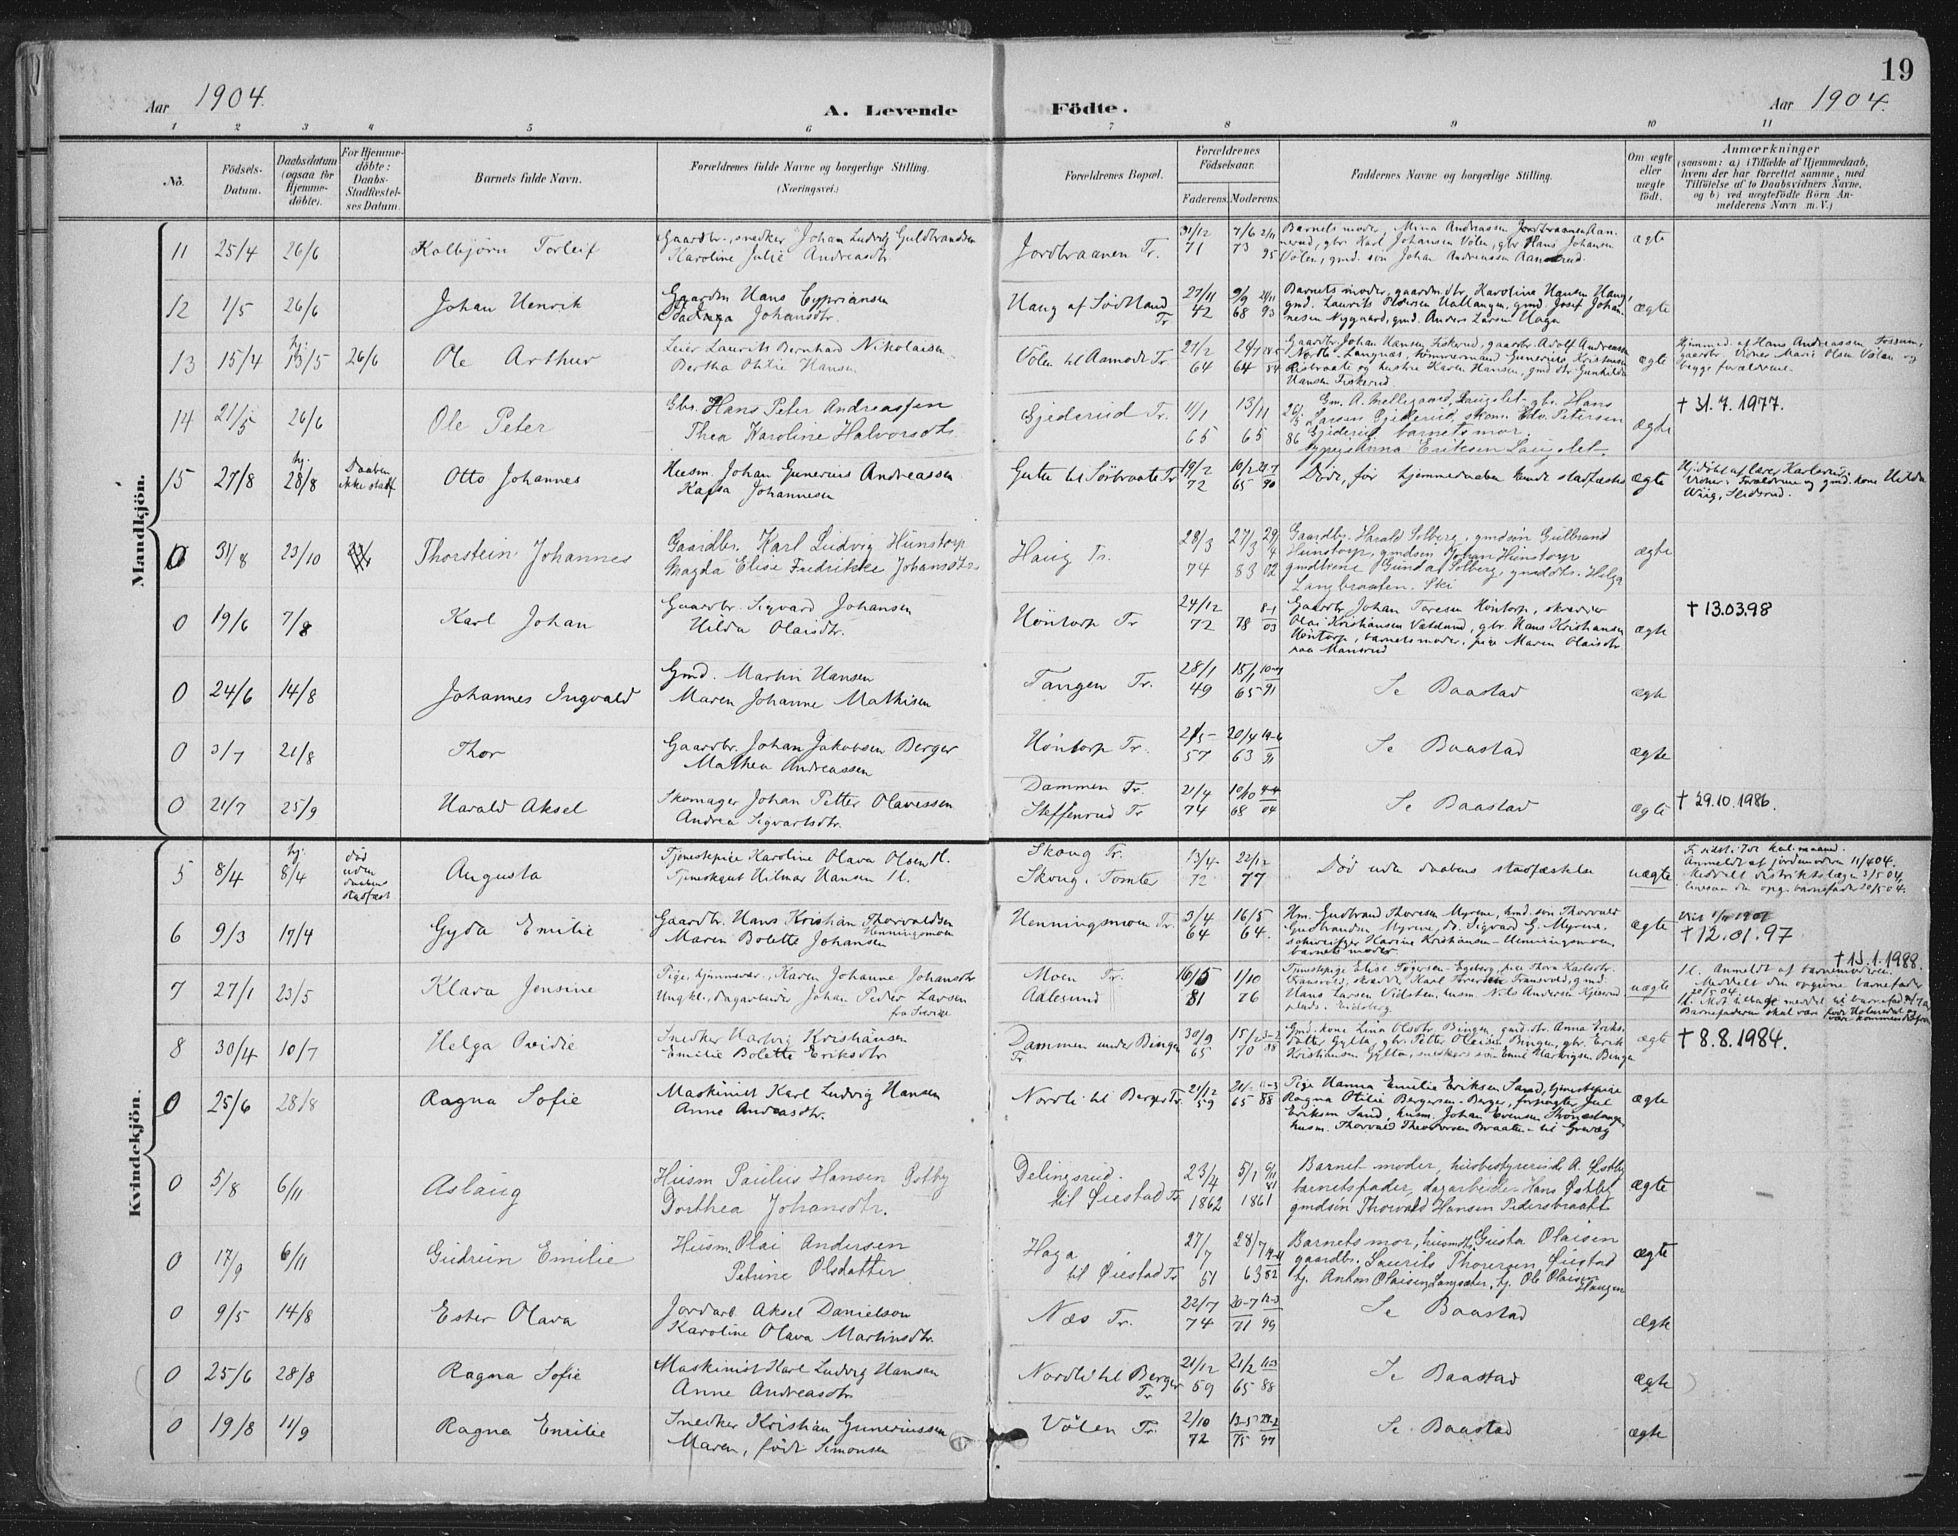 19
Aar 1904.
A. Levende Födte.
Aar 1904.
1 2 3 4 5 6 7 8 9 10 11
No.
Födsels-Datum.
Daabsdatum (ogsaa for Hjemme-döbte).
For Hjemme-döbte: Daabs-Stadfæstel-ses Datum.
Barnets fulde Navn.
Forældrenes fulde Navne og borgerlige Stilling.
(Næringsvei.)
Forældrenes Bopæl.
Forældrenes Födselsaar.
Faderens. Moderens.
Faddernes Navne og borgerlige Stilling.
Om ægte eller uægte födt.
Anmærkninger
(saasom: a) i Tilfælde af Hjemmedaab,
hvem der har forrettet samme, med
Tilföielse af to Daabsvidners Navne,
og b) ved uægtefödte Börn An-
melderens Navn m. V.)
Mandkjön.
11 25/4 26/6 Kolbjörn Torleif
Gaardbr., snedker Johan Ludvig Guldbrandsen
Karoline Julie Andreasdtr.
Jordbraanen Tr.
31/12 71 7/6 73 2/11 95
Barnets moder, Mina Andreassen Jordbraanen
gbr. Karl Johansen Völen, gbr. Hans Johansen
Völen, gmd. sön Johan Andreassen Aanerud.
ægte
12 1/5 26/6 Johan Henrik
Gaardm Hans Cypriansen
Johansdtr.
Haug af Södland Tr
27/11 42 9/9 68 93
Barnets moder, gaardm.dtr. Karoline Hansen Haug,
gmd. Laurits Pedersen Uallangen, gmd Josef Johan-
nesen Nygaard, gmd. Anders Larsen Haga
ægte
13 15/4 hj. 13/5 26/6 Ole Arthur
Leier Laurits Bernhard Nikolaisen
Bertha Otilie Hansen
Völen til Aamodt Tr.
27/2 64 64 84
Gaardbr. Johan Hansen Fiskerud, gaardbr. Adolf Andreassen
Nordb. Langnæs, tömmermand Gunerius Kristiansen
Risbraate og hustru Karen Hansen, gmd dtr Gunhilda
Hansen Fiskerud
ægte
hjemmed. af Hans Andreassen Fossum,
gaardbr. Vidner Marie Olsen Völen og
begge forældrene.
14 21/5 26/6 Ole Peter
Gbr. Hans Peter Andreassen
Thea Karoline Halvorsdtr.
Gjederud Tr.
11/1 65 13/11 65 86
Gm. A. Mellegaard, Laugslet, gbr. Hans
Larsen Gjederud, skom. Edv. Petersen
Gjederud barnets mor,
Anna Eriksen Laugslet.
ægte
† 31.7.1977.
15 27/8 hj. 28/8 Daaben ikke stadf. Otto Johannes
Husm. Johan Gunerius Andreassen
Kaisa Johannesen
Gutte til Sörbraate Tr
19/2 72 10/2 65 90
Döde, för hjemmedaaben kunde stadfæstes
ægte
Hj.döbt af lærer Karlsrud,
Vidner: Forældrene og gmd. kone Hilda
Wiig, Slidsrud.
0 31/8 23/10 Thorstein Johannes
Gaardbr. Karl Ludvig Hunstorp
Magda Elise Fredrikke Johansdtr.
Haug Tr.
28/3 74 27/3 83 29/4 02
Gaardbr. Harald Solberg, gmdsön Gulbrand
Hunstorp, gmdsön Johan Hunstorp
gmdkone Gunda Solberg, gmddtr. Helga
Langbraaten. Ski
ægte
0 19/6 7/8 Karl Johan
Gaardbr. Sigvard Johansen
Hilda Olaisdtr.
Höntorp Tr
24/12 72 78 8-1 03
Gaardbr. Johan Toresen Höntorp, skrædder
Olai Kristiansen Vatslund, gbr. Hans Kristiansen
Höntorp, barnets moder, pige Maren Olaisdtr
paa Mansrud
ægte
† 13.03.98
0 24/6 14/8 Johannes Ingvald
Gmd. Martin Hansen
Maren Johanne Mathisen
Tangen Tr.
28/1 49 15/1 65 91
Se Baastad
ægte
0 3/7 21/8 Thor
Gaardbr. Johan Jakobsen Berger
Mathea Andreassen
Höntorp Tr.
57 20/4 63 19-6 91
Se Baastad
ægte
0 21/7 25/9 Harald Aksel
Skomager Johan Petter Olavessen
Andrea Sigvartsdtr.
Dammen Tr.
Steffenrud Tr
21/4 74 10/10 68 4-4 04
Se Baastad
ægte
† 29.10.1986.
Kvindekjön.
5 8/4 hj. 8/4 död uden daabens stadfæst Augusta
Tjenestepige Karoline Olava Olsen U.
Tjenestegut Hilmar Hansen U.
Skoug Tr.
Skoug, Tomter
13/4 72 22/12 77
Död uden daabens stadfæstelse
uægte
Anmeldt af jordemoderen 11/4 04.
Meddelt distriktslægen 3/5 04,
den opg. barnefader 20/5 04.
6 9/3 17/4 Gyda Emilie
Gaardbr. Hans Kristian Thorvaldsen
Henningsmoen
Maren Bolette Johansen
Henningsmoen Tr.
3/4 64 16/5 64.
Hm. Gudbrand Thoresen Myrene, hmd. sön Thorvald
Gudbrandsen Myrene, do. Sigvard G. Myrene,
Karine Kristiansen-Henningsmoen,
barnets moder
ægte
† 12.01.97
7 27/1 23/5 Klara Jensine
Pige, hjemmevær., Karen Johanne Johansdtr
Ungk., dagarbeider Johan Peder Larsen
fra Sverige
Moen Tr.
Aalesund
16/5 81 1/10 76
Tjenestepige Elise Tögersen-Egeberg, pige Thora Karlsdtr.
Transvold, skrædder Karl Iversen Transvold, gmd.
Hans Larsen Vidsten, husm. Nils Andersen Kjesrud
plads. Eidsberg
uægte
† 15.1.1988.
U. Anmeldt af barnemoderen.
Meddelt den opgivne barnefader
20/5 04.
8 30/4 10/7 Helga Ovidie
Snedker Hartvig Kristiansen
Emilie Bolette Eriksdtr
Dammen under Bingen Tr
30/9 65 15/12 70 88
Gmd. kone Lina Olsdtr Bingen, gmd. dtr. Anna Eriks-
datter Gylta, gbr. Petter Olaisen Bingen, gbr. Erik
Kristiansen Gylta, snedkers sön Emil Hartvigsen Bingen
ægte
† 8.8.1984.
0 25/6 28/8 Ragna Sofie
Maskinist Karl Ludvig Hansen
Anne Andreasdtr.
Nordli til Berger Tr.
21/12 59 21/2 65 11-3 88
Pige Hanna Emilie Eriksen Sand, tjenestepige
Ragna Otilie Bergersen-Berger, forpagter Jul
Eriksen Sand, husm. Johan Evensen
husm. Thorvald Theodorsen Braaten- til Grevæg
ægte
0 5/8 6/11 Aslaug
Husm Paulius Hansen Østby
Dorthea Johansdtr.
Delingsrud.
til Øiestad Tr
23/4 1862 5/1 1861 6/11 81
Barnet moder, husbestyrerinde A. Østby
barnetsfader, dagarbeider Hans Østby
gmdsön Thorvald Hansen Pedersbraatt
ægte
0 17/9 6/11 Gudrun Emilie
Husm. Olai Andersen
Petrine Olsdatter
Haga
til Øiestad Tr
27/7 51 28/7 63 82
Barnets mor, husmdtr. Gusta Olaisen
gaardbr. Laurits Thoresen Øiestad
tj. Anton Olaisen Langsæter, tj. Ole Olaisen
Haugen
ægte
0 9/5 14/8 Ester Olava
Jordarb. Aksel Danielson
Karoline Olava Martinsdtr.
Næs Tr.
22/7 74 20-7 71 12-3 99
Se Baastad
ægte
0 25/6 28/8 Ragna Sofie
Maskinist Karl Ludvig Hansen
Anne Andreasdtr
Nordli til Berger
Tr
21/12 59 21/2 65 11-3 88
Se Baastad
ægte
0 19/8 11/9 Ragna Emilie
Snedker Kristian Guneriussen
Maren, født Simonsen
Völen Tr.
2/10 72 13-5 75 97
Se Baastad
ægte